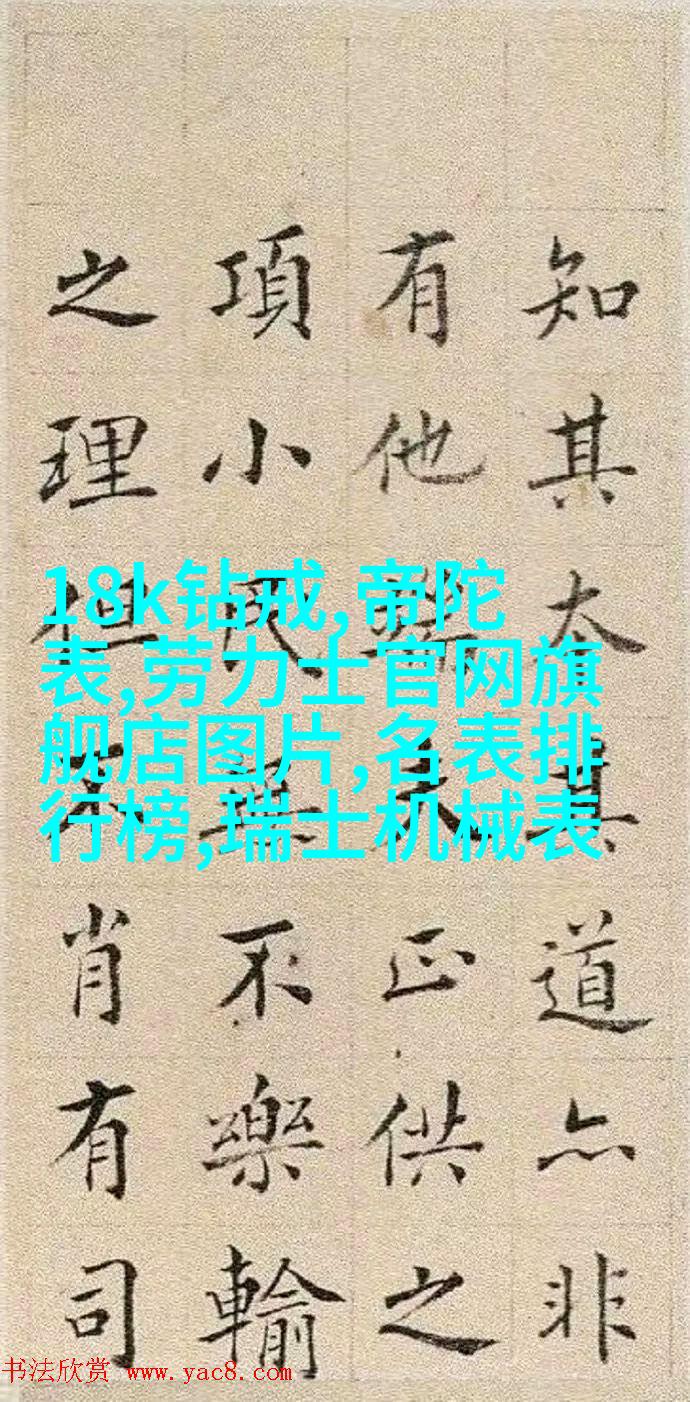 知其太其道亦非
有他正供之
項小民無不樂輸
之理但不肖有司
18k钻戒,帝陀
表,劳力士官网旗
舰店图片,名表排
行榜,瑞士机械表
书法欣赏 www.yac8.com